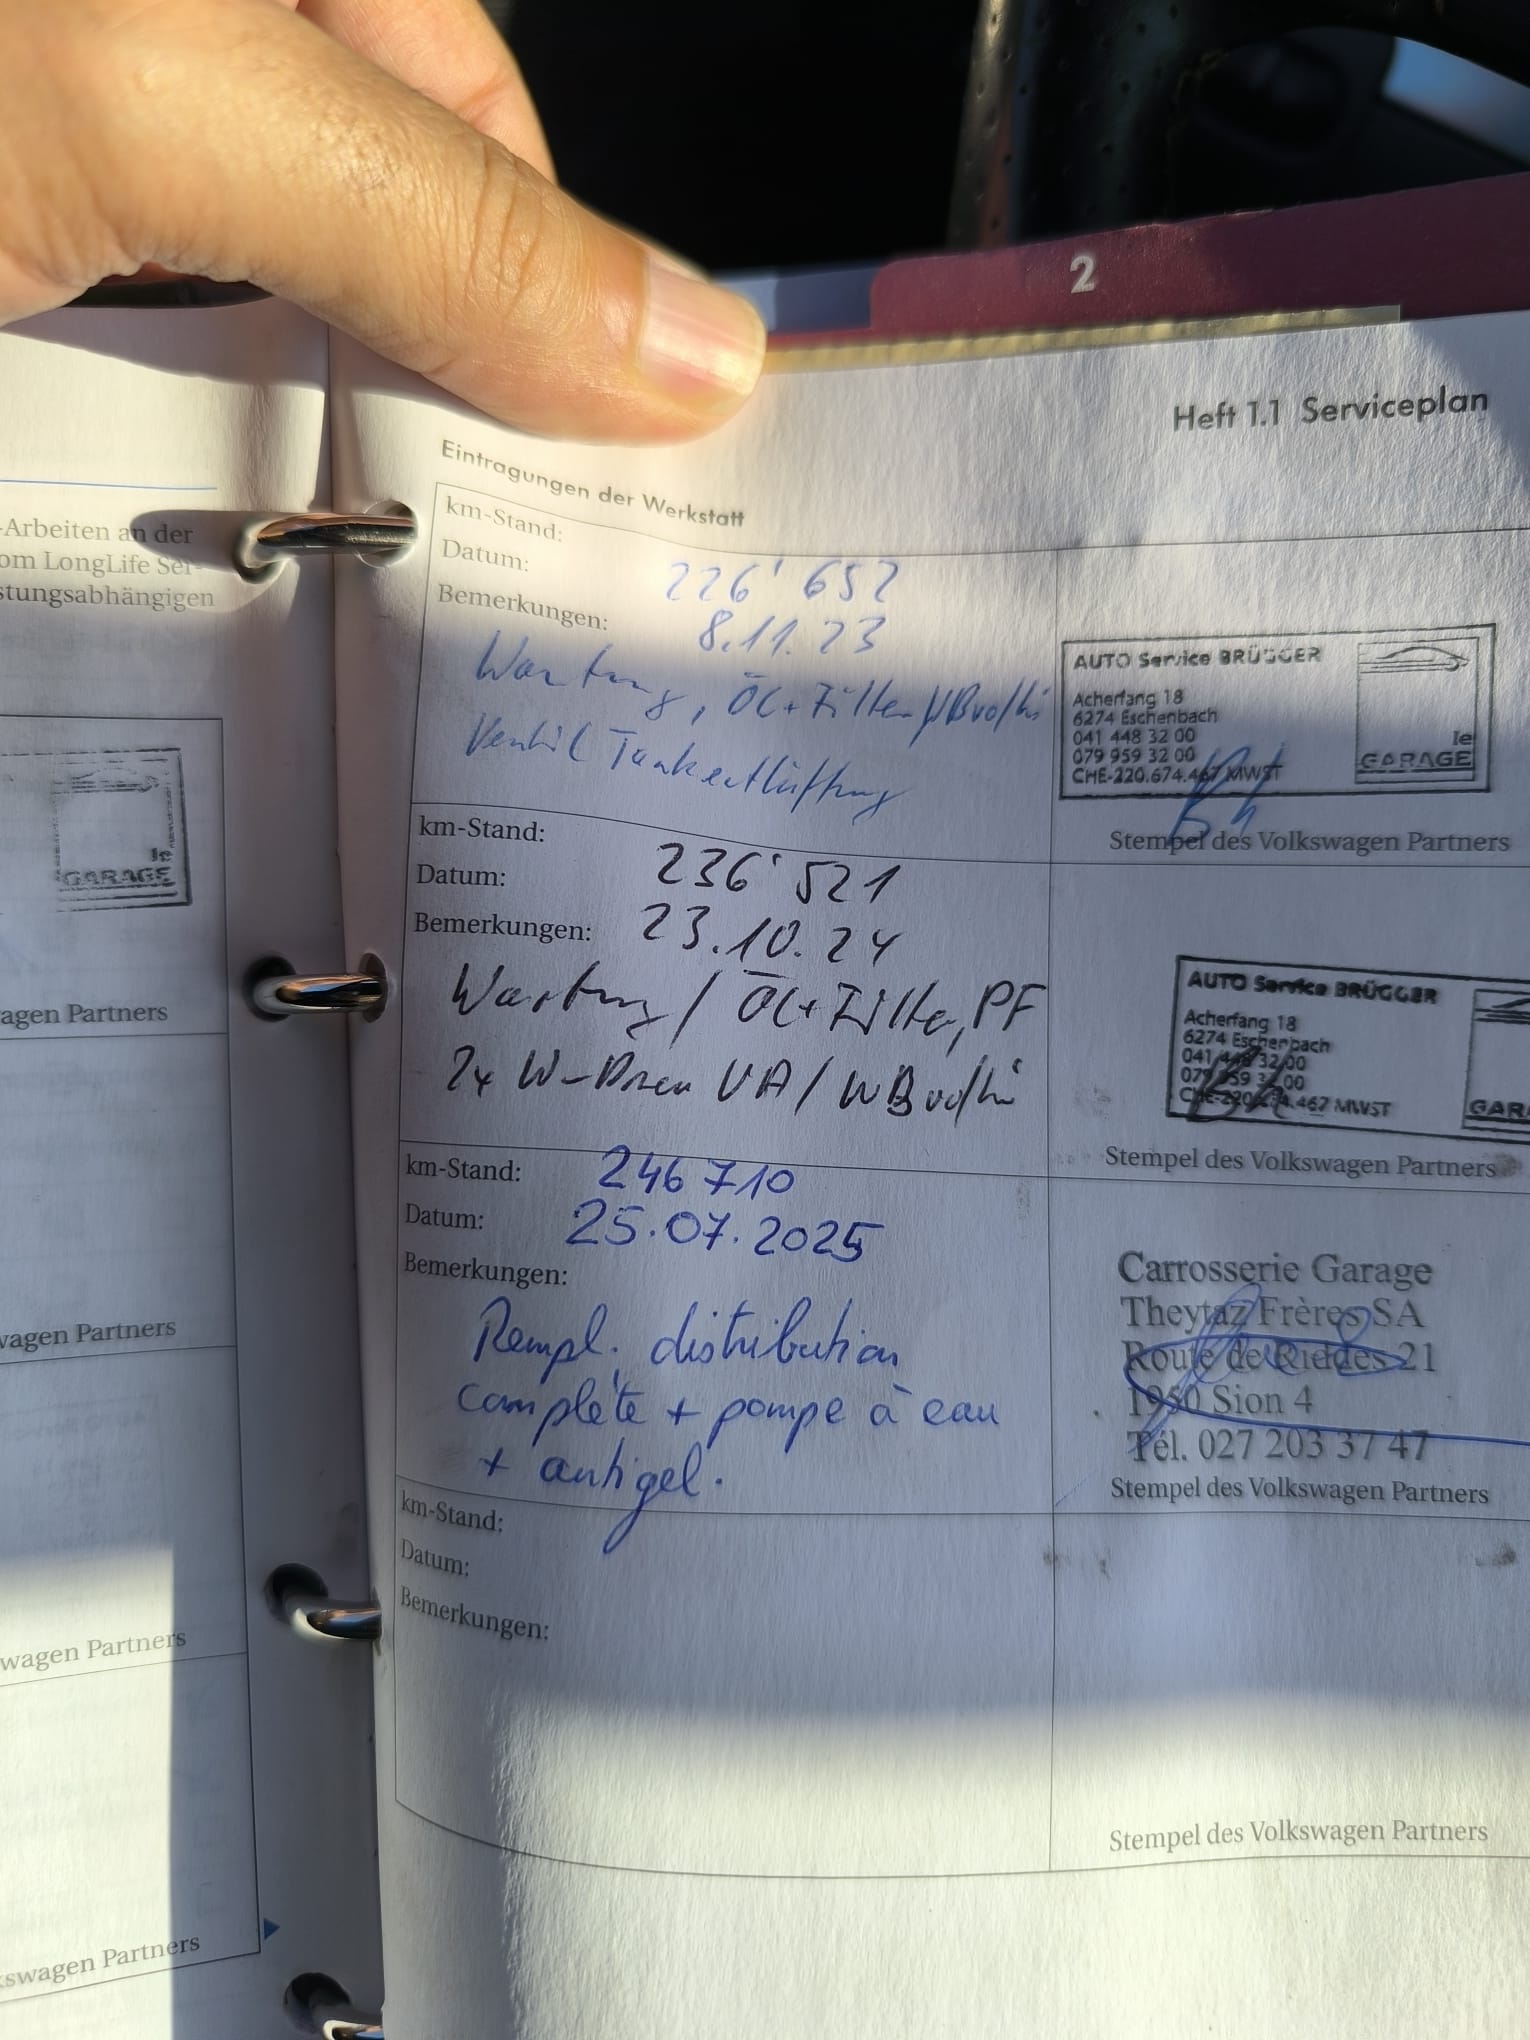 2
Heft 1.1 Serviceplan
-Arbeiten an der
om LongLife Ser-
stungsabhängigen
le
GARAGE
agen Partners
wagen Partners
wagen Partners
kswagen Partners
Eintragungen der Werkstatt
km-Stand: 226'652
Datum: 8.11.23
Bemerkungen:
Wartung, Öl+Filter/WB vo/hi
Ventil Tankentlüftung
AUTO Service BRÜGGER
Acherfang 18
6274 Eschenbach
041 448 32 00
079 959 32 00
CHE-220.674.467 MWST
le
GARAGE
Stempel des Volkswagen Partners
km-Stand: 236'521
Datum: 23.10.24
Bemerkungen:
Wartung / Öl+Filter, PF
2x W- VA / WB vo/hi
AUTO Service BRÜGGER
Acherfang 18
6274 Eschenbach
041 448 32 00
079 959 32 00
CHE-220.674.467 MWST
GARA
Stempel des Volkswagen Partners
km-Stand: 246 710
Datum: 25.07.2025
Bemerkungen:
Rempl. distribution
complète + pompe à eau
+ antigel.
Carrosserie Garage
Theytaz Frères SA
Route de Riddes 21
1950 Sion 4
Tél. 027 203 37 47
Stempel des Volkswagen Partners
km-Stand:
Datum:
Bemerkungen:
Stempel des Volkswagen Partners